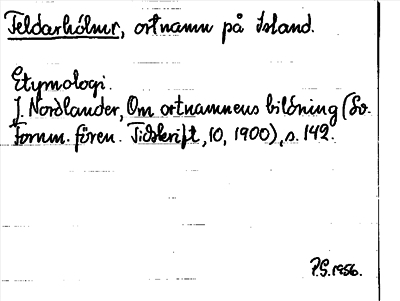 Feldarhólmr, ortnamn på Island.
Etymologi.
J. Nordlander, Om ortnamnens bildning (Sv.
Fornm. fören. Tidskrift, 10, 1900), s. 142.
P.G. 1956.